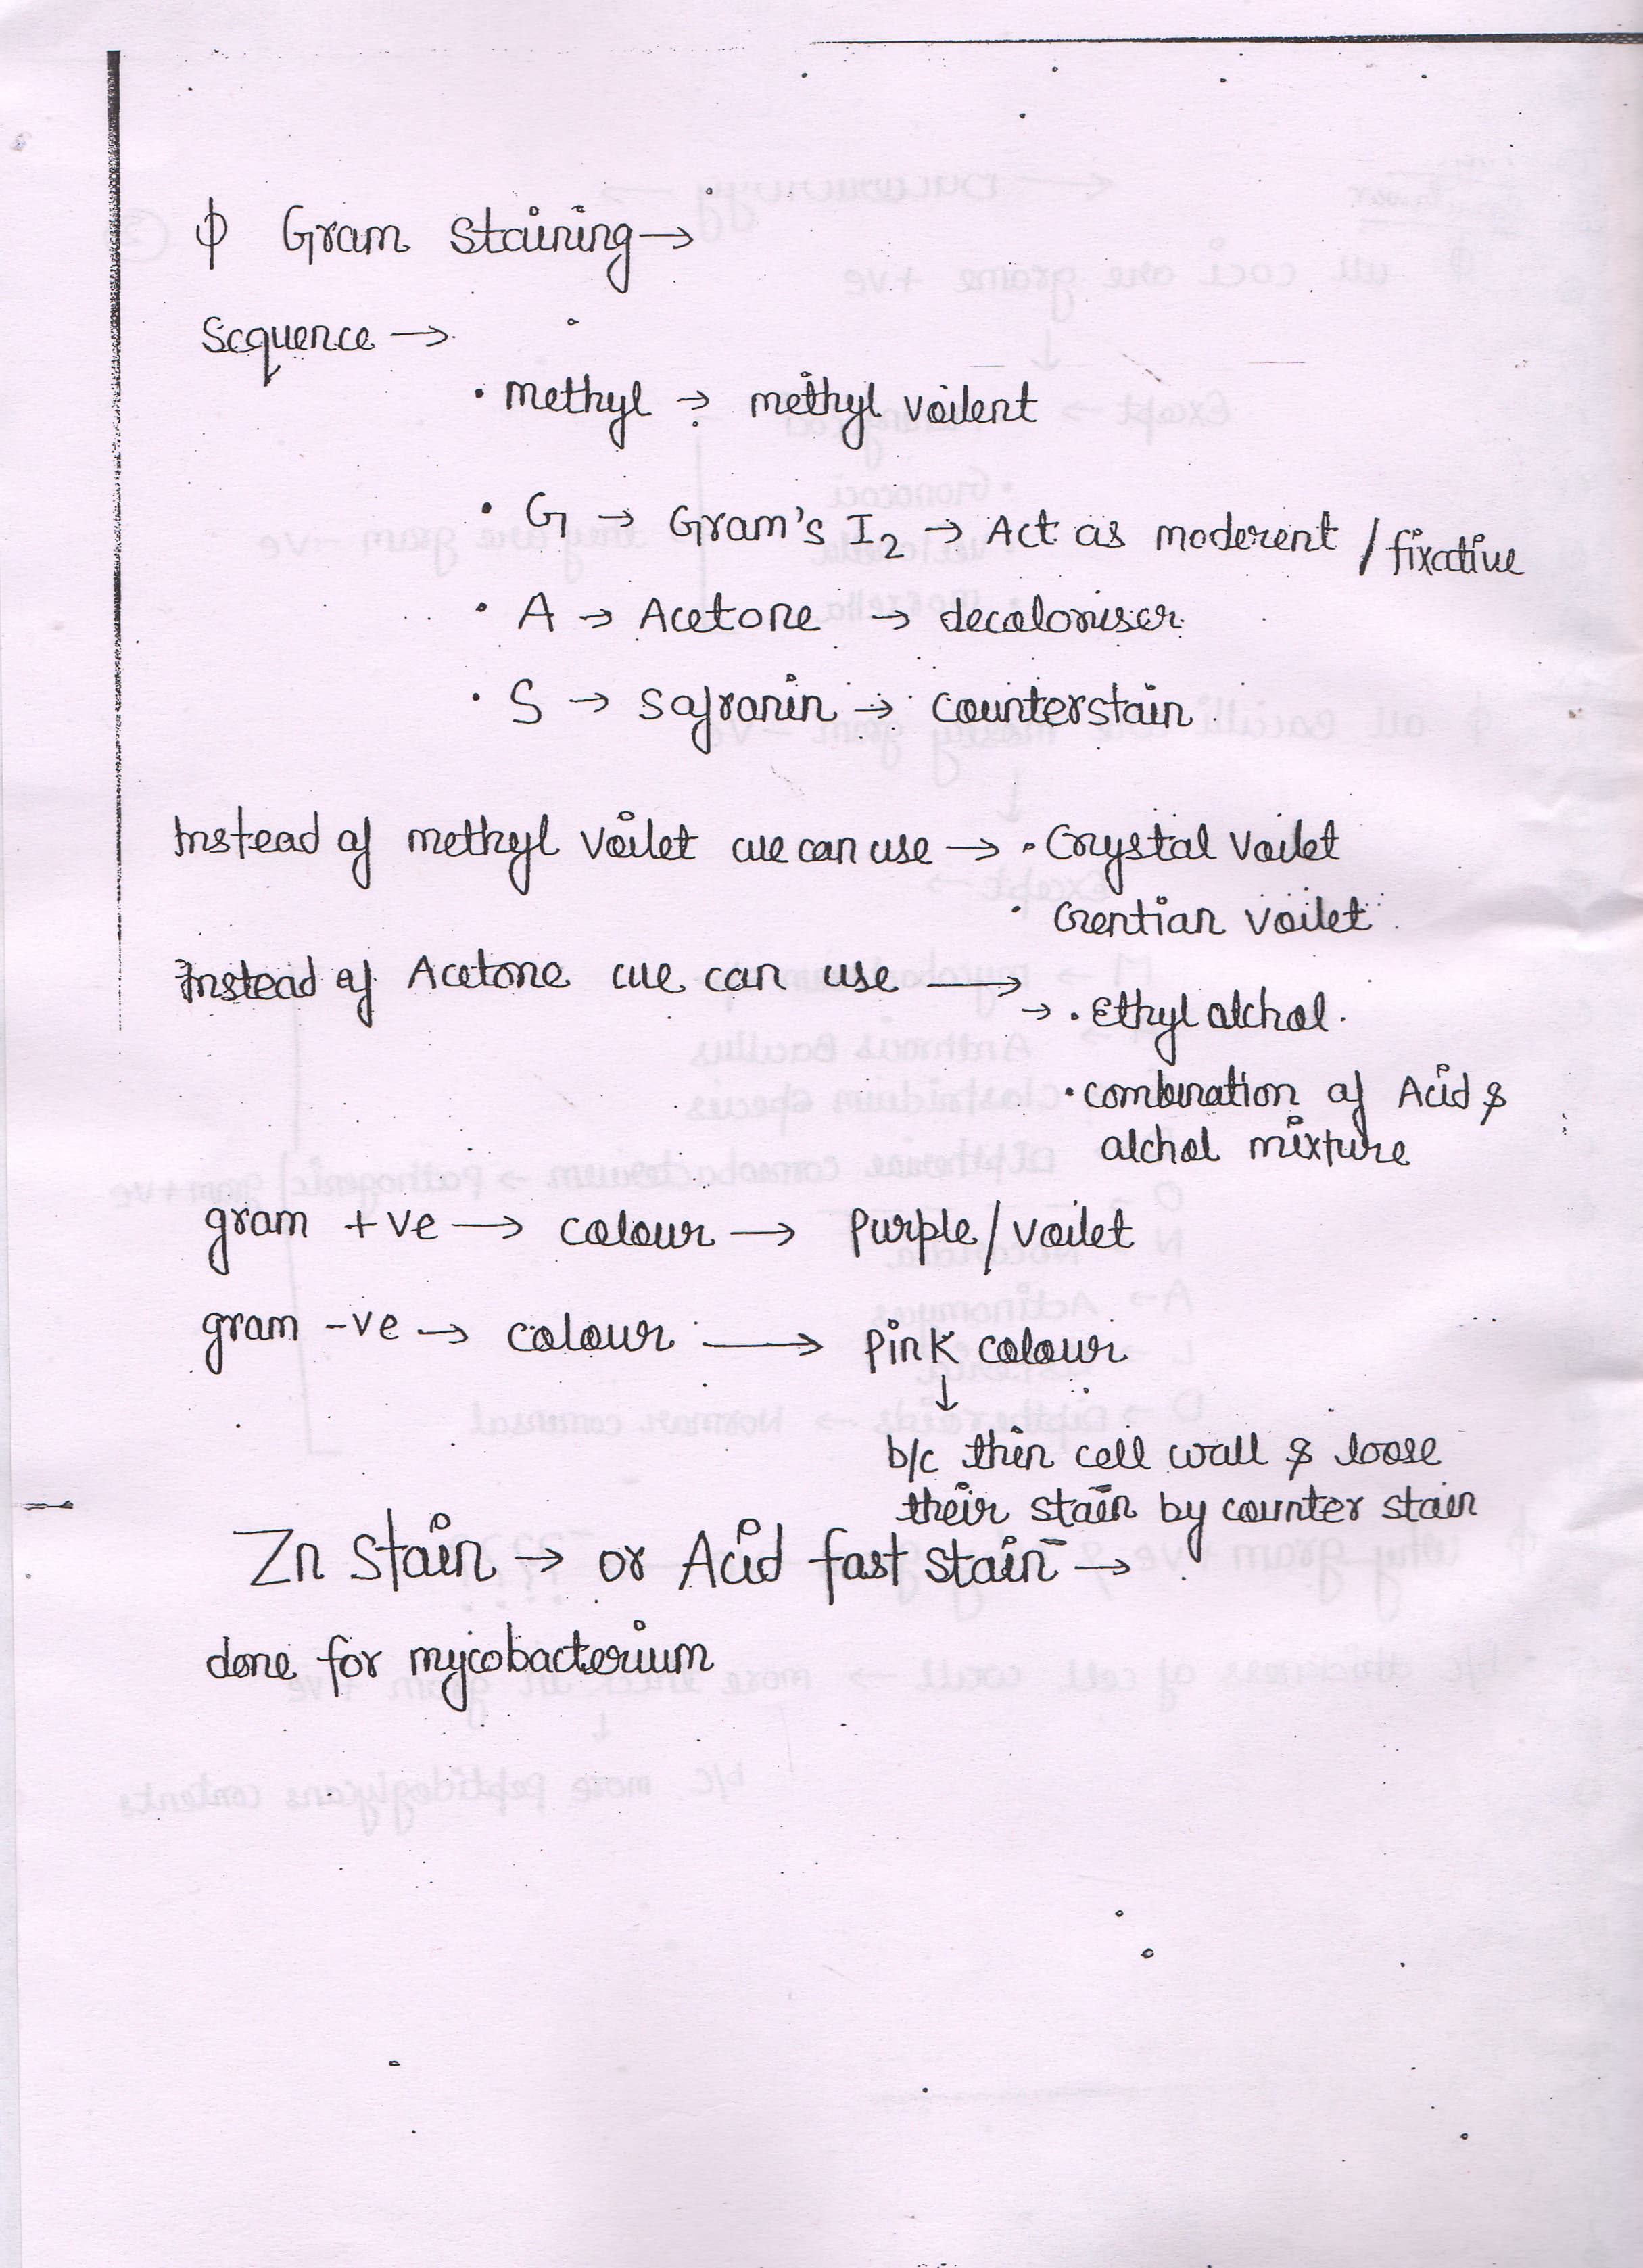 ϕ Gram Staining →
Sequence →
• Methyl → methyl voilent
• G → Gram's I₂ → Act as moderent / fixative
• A → Acetone → decoloriser
• S → Safranin → counterstain
Instead of methyl Voilet we can use → • Crystal Voilet
• Gentian Voilet
Instead of Acetone we can use ⟶
→ • Ethyl alchol.
• combination of Acid &
alchol mixture
gram +ve → colour → Purple / Voilet
gram -ve → colour ⟶ Pink colour
↓
b/c thin cell wall & loose
their stain by counter stain
Zn Stain → or Acid fast stain →
done for mycobacterium